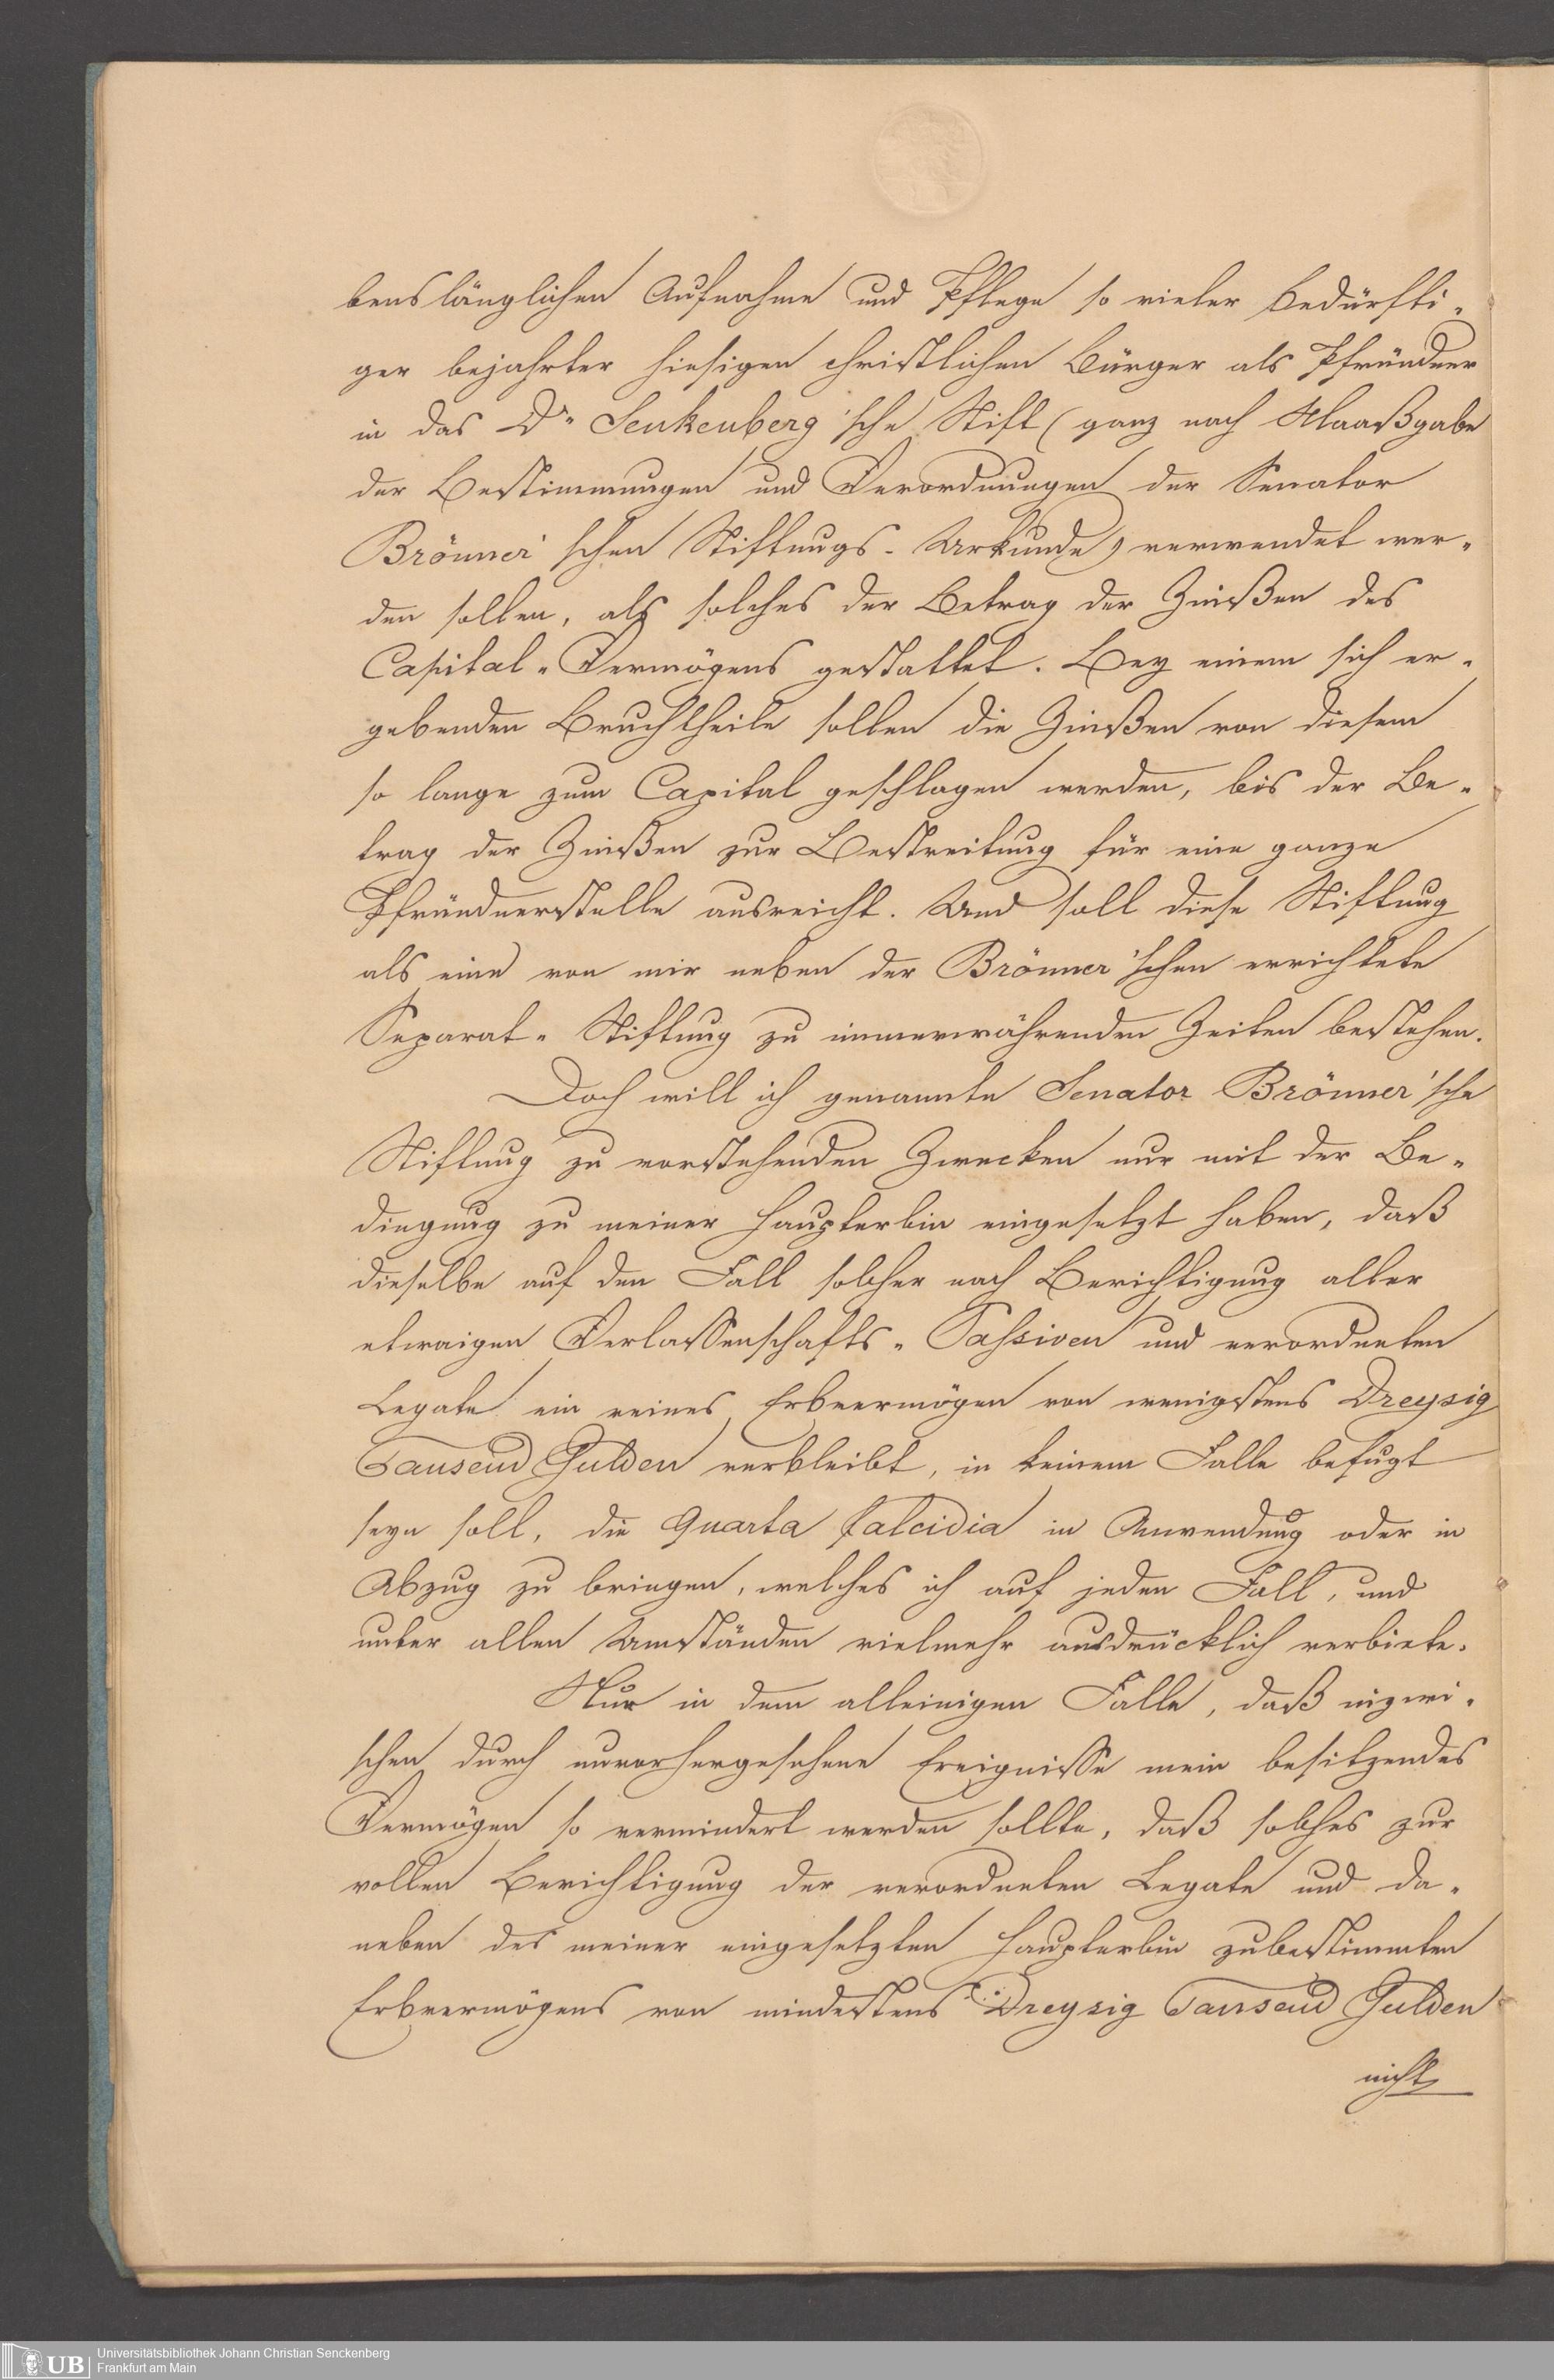 benslänglichen Aufnahme und Pflege so vieler bedürfti-
ger bejahrter hiesigen christlichen Bürger als Pfründner
in das Dr. Senkenberg'sche Stift (ganz nach Maaßgabe
der Bestimmungen und Verordnungen der Senator
Brönner'schen Stiftungs-Urkunde) verwendet wer-
den sollen, als solches der Betrag der Zinßen des
Capital-Vermögens gestattet. Bey einem sich er-
gebenden Bruchtheile sollen die Zinßen von diesem
so lange zum Capital geschlagen werden, bis der Be-
trag der Zinßen zur Bestreitung für eine ganze
Pfründnerstelle ausreicht. Und soll diese Stiftung
als eine von mir neben der Brönner'schen errichtete
Separat-Stiftung zu immerwährenden Zeiten bestehen.
Doch will ich genannte Senator Brönner'sche
Stiftung zu vorstehenden Zwecken nur mit der Be-
dingung zu meiner Haupterbin eingesetzt haben, daß
dieselbe auf den Fall solcher nach Berichtigung aller
etwaigen Verlassenschafts-Passiven und verordneten
Legate ein reines Erbvermögen von wenigstens Dreysig
Tausend Gulden verbleibt, in keinem Falle befugt
seyn soll, die Quarta falcidia in Anwendung oder in
Abzug zu bringen, welches ich auf jeden Fall, und
unter allen Umständen vielmehr ausdrücklich verbiete.
Nur in dem alleinigen Falle, daß inzwi-
schen durch unvorhergesehene Ereignisse mein besitzendes
Vermögen so vermindert werden sollte, daß solches zur
vollen Berichtigung der verordneten Legate und da-
neben des meiner eingesetzten Haupterbin zubestimmten
Erbvermögens von mindestens Dreysig Tausend Gulden
nicht
UB Universitätsbibliothek Johann Christian Senckenberg
Frankfurt am Main